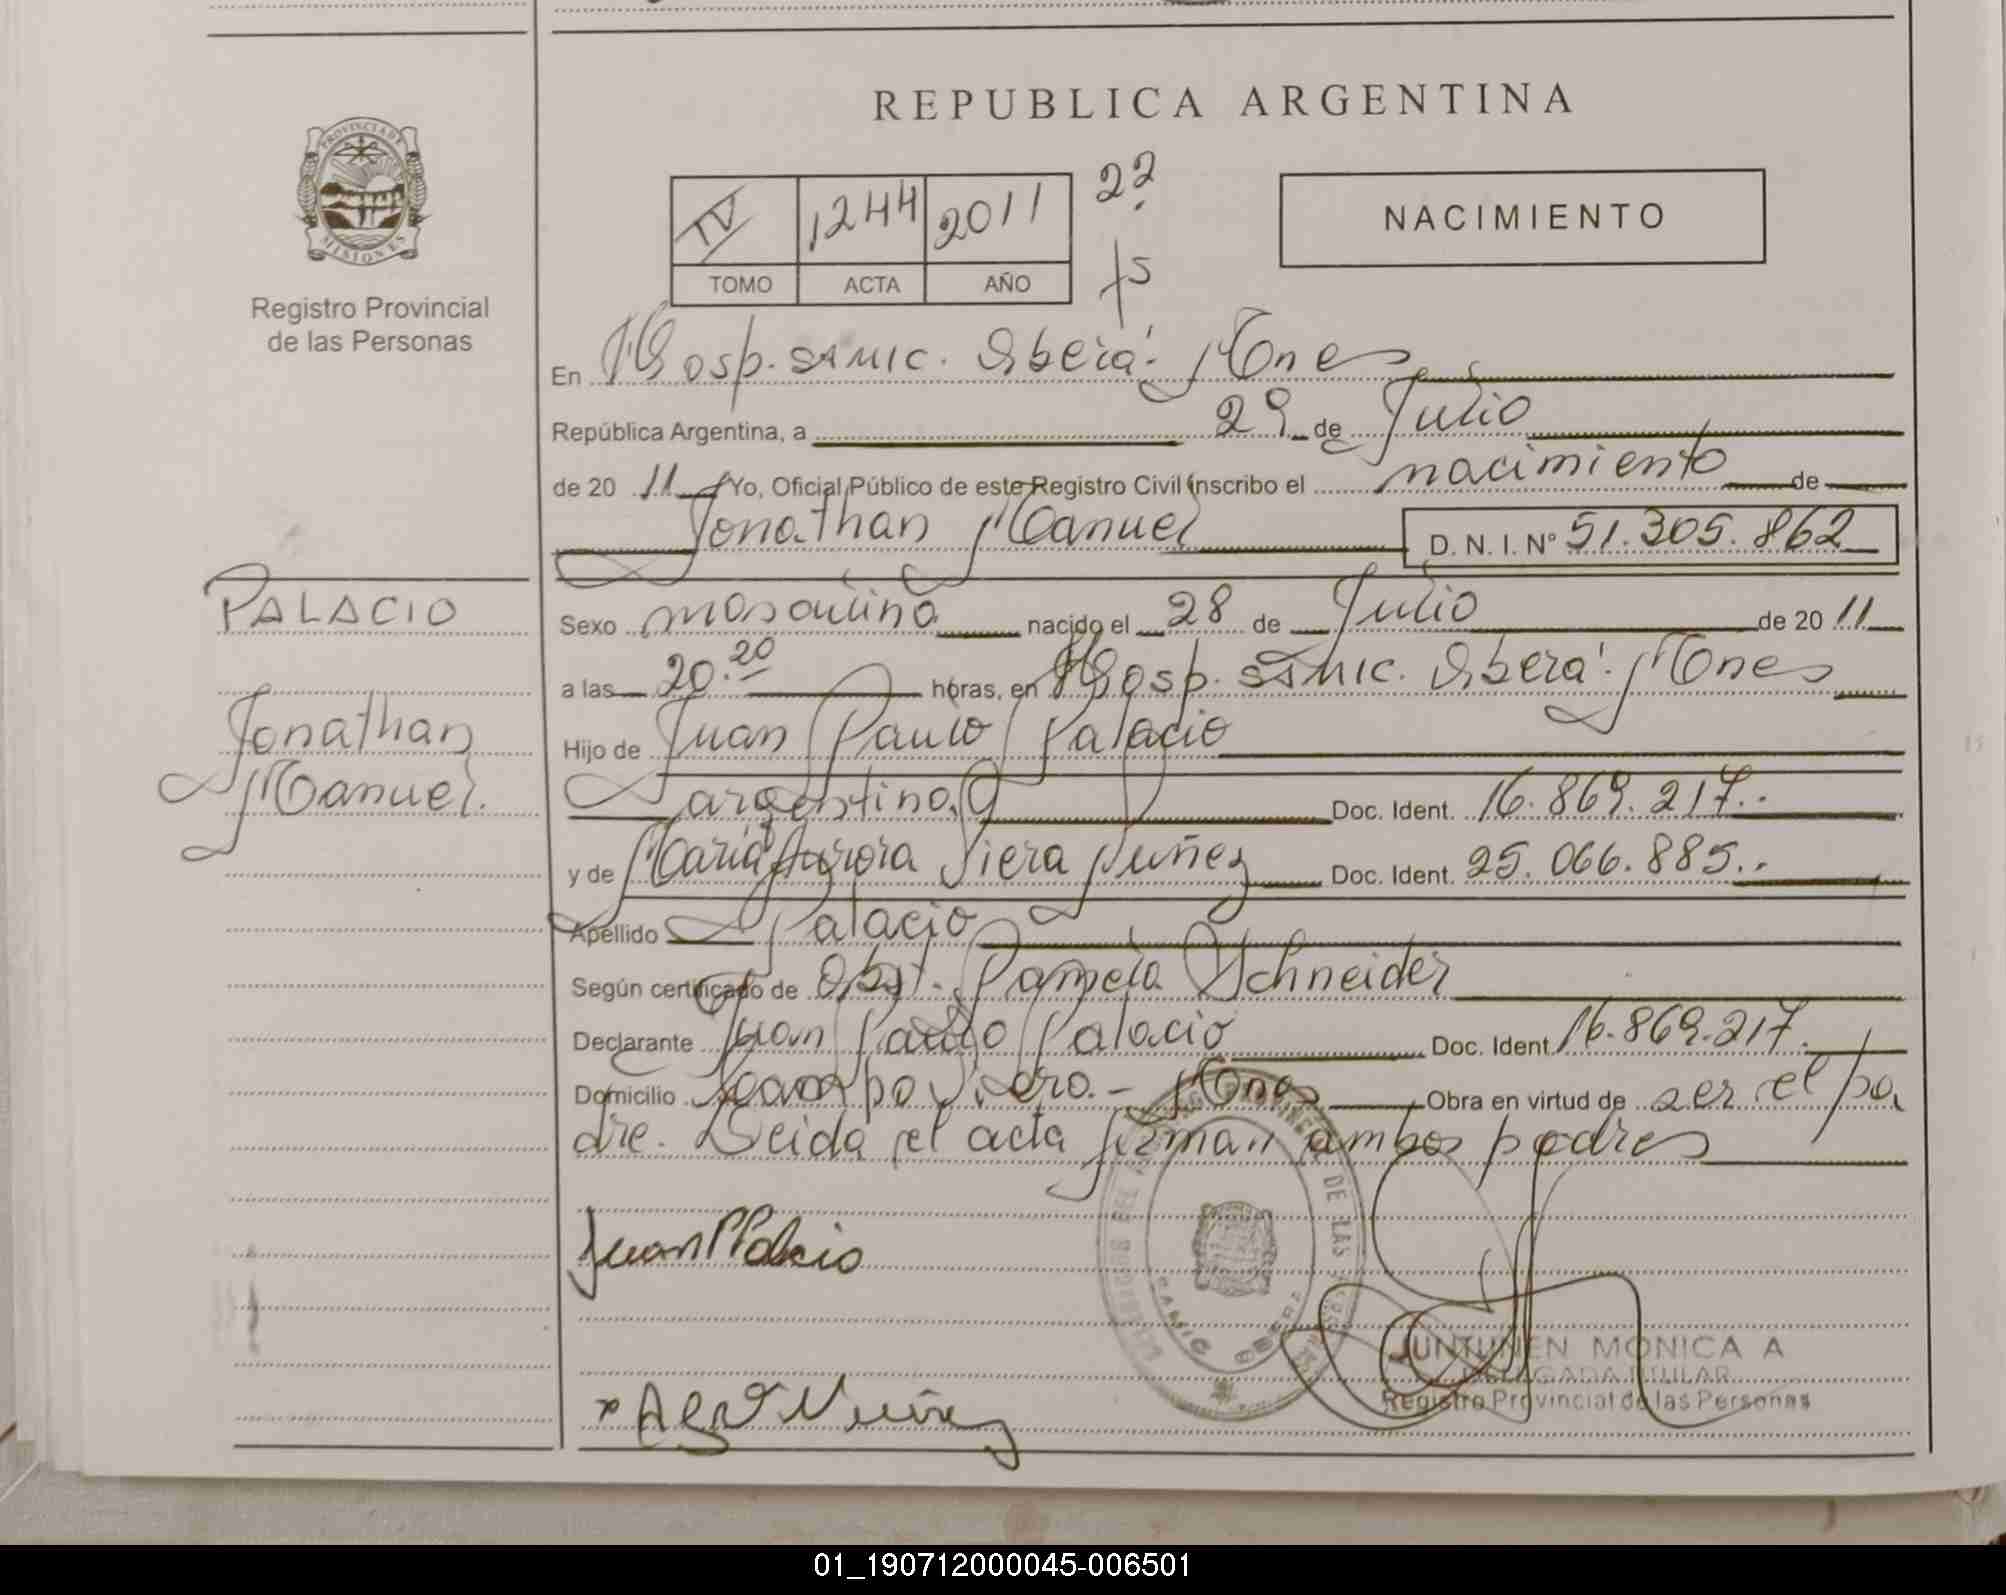 REPUBLICA ARGENTINA
PROVINCIA DE
MISIONES
Registro Provincial
de las Personas
IV 1244 2011 22
TOMO ACTA AÑO f5
NACIMIENTO
En Hosp. SAMIC. Oberá. Mnes
República Argentina, a 29 de Julio
de 20 11 Yo, Oficial Público de este Registro Civil inscribo el nacimiento de
Jonathan Manuel D. N. I. Nº 51.305.862
PALACIO
Jonathan
Manuel.
Sexo masculino nacido el 28 de Julio de 20 11
a las 20.20 horas, en Hosp. SAMIC. Oberá. Mnes
Hijo de Juan Paulo Palacio
argentino. Doc. Ident. 16.869.217..
y de María Aurora Viera Nuñez Doc. Ident. 25.066.885..
Apellido Palacio
Según certificado de Obst. Pamela Schneider
Declarante Juan Paulo Palacio Doc. Ident 16.869.217.
Domicilio Campo Viera.- Mnes Obra en virtud de ser el pa
dre. Leida el acta firman ambos padres
Juan P Palacio
DE LAS
SAMIC OBERA
JUNTUNEN MONICA A
DELEGADA TITULAR
Registro Provincial de las Personas
Nuñez
01_190712000045-006501